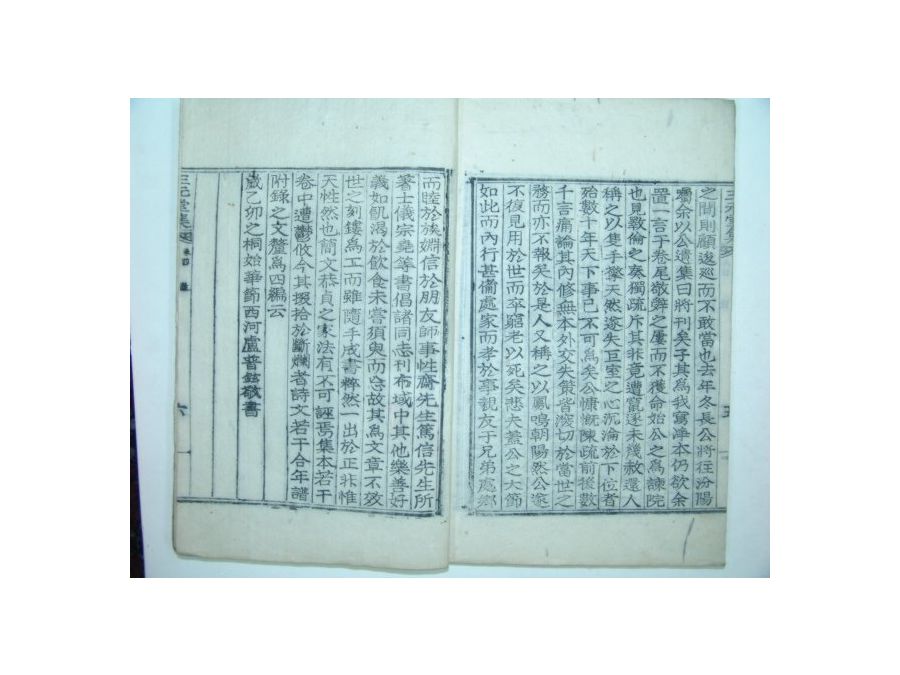 之間則顧逡巡而不敢當也去年冬長公將往汾陽
囑余以公遺集曰將刊矣子其爲我寫淨本仍欲余
置一言于卷尾敬辭之屢而不獲命始公之爲諫院
也見斁倫之奏獨疏斥其非竟遭竄逐未幾赦還人
稱之以隻手擎天然遂失巨室之心沉淪於下位者
殆數十年天下事已不可爲矣公慷慨陳疏前後數
千言痛論其內修無本外交失策皆深切於當世之
務而亦不報矣於是人又稱之以鳳鳴朝陽然公遂
不復見用於世而卒窮老以死矣悲夫蓋公之大節
如此而內行甚備處家而孝於事親友于兄弟處鄉
而睦於族姻信於朋友師事性齋先生篤信先生所
著士儀宗堯等書倡諸同志刊布域中其他樂善好
義如飢渴於飮食未嘗須臾而忘故其爲文章不效
世之刻鏤爲工而雖隨手成書粹然一出於正非惟
天性然也簡文恭貞之家法有不可誣焉集本若干
卷中遭鬱攸今其掇拾於斷爛者詩文若干合年譜
附錄之文釐爲四編云
歲乙卯之桐始華節西河盧普鉉敬書
三元堂集 卷四
六
三元堂集
五